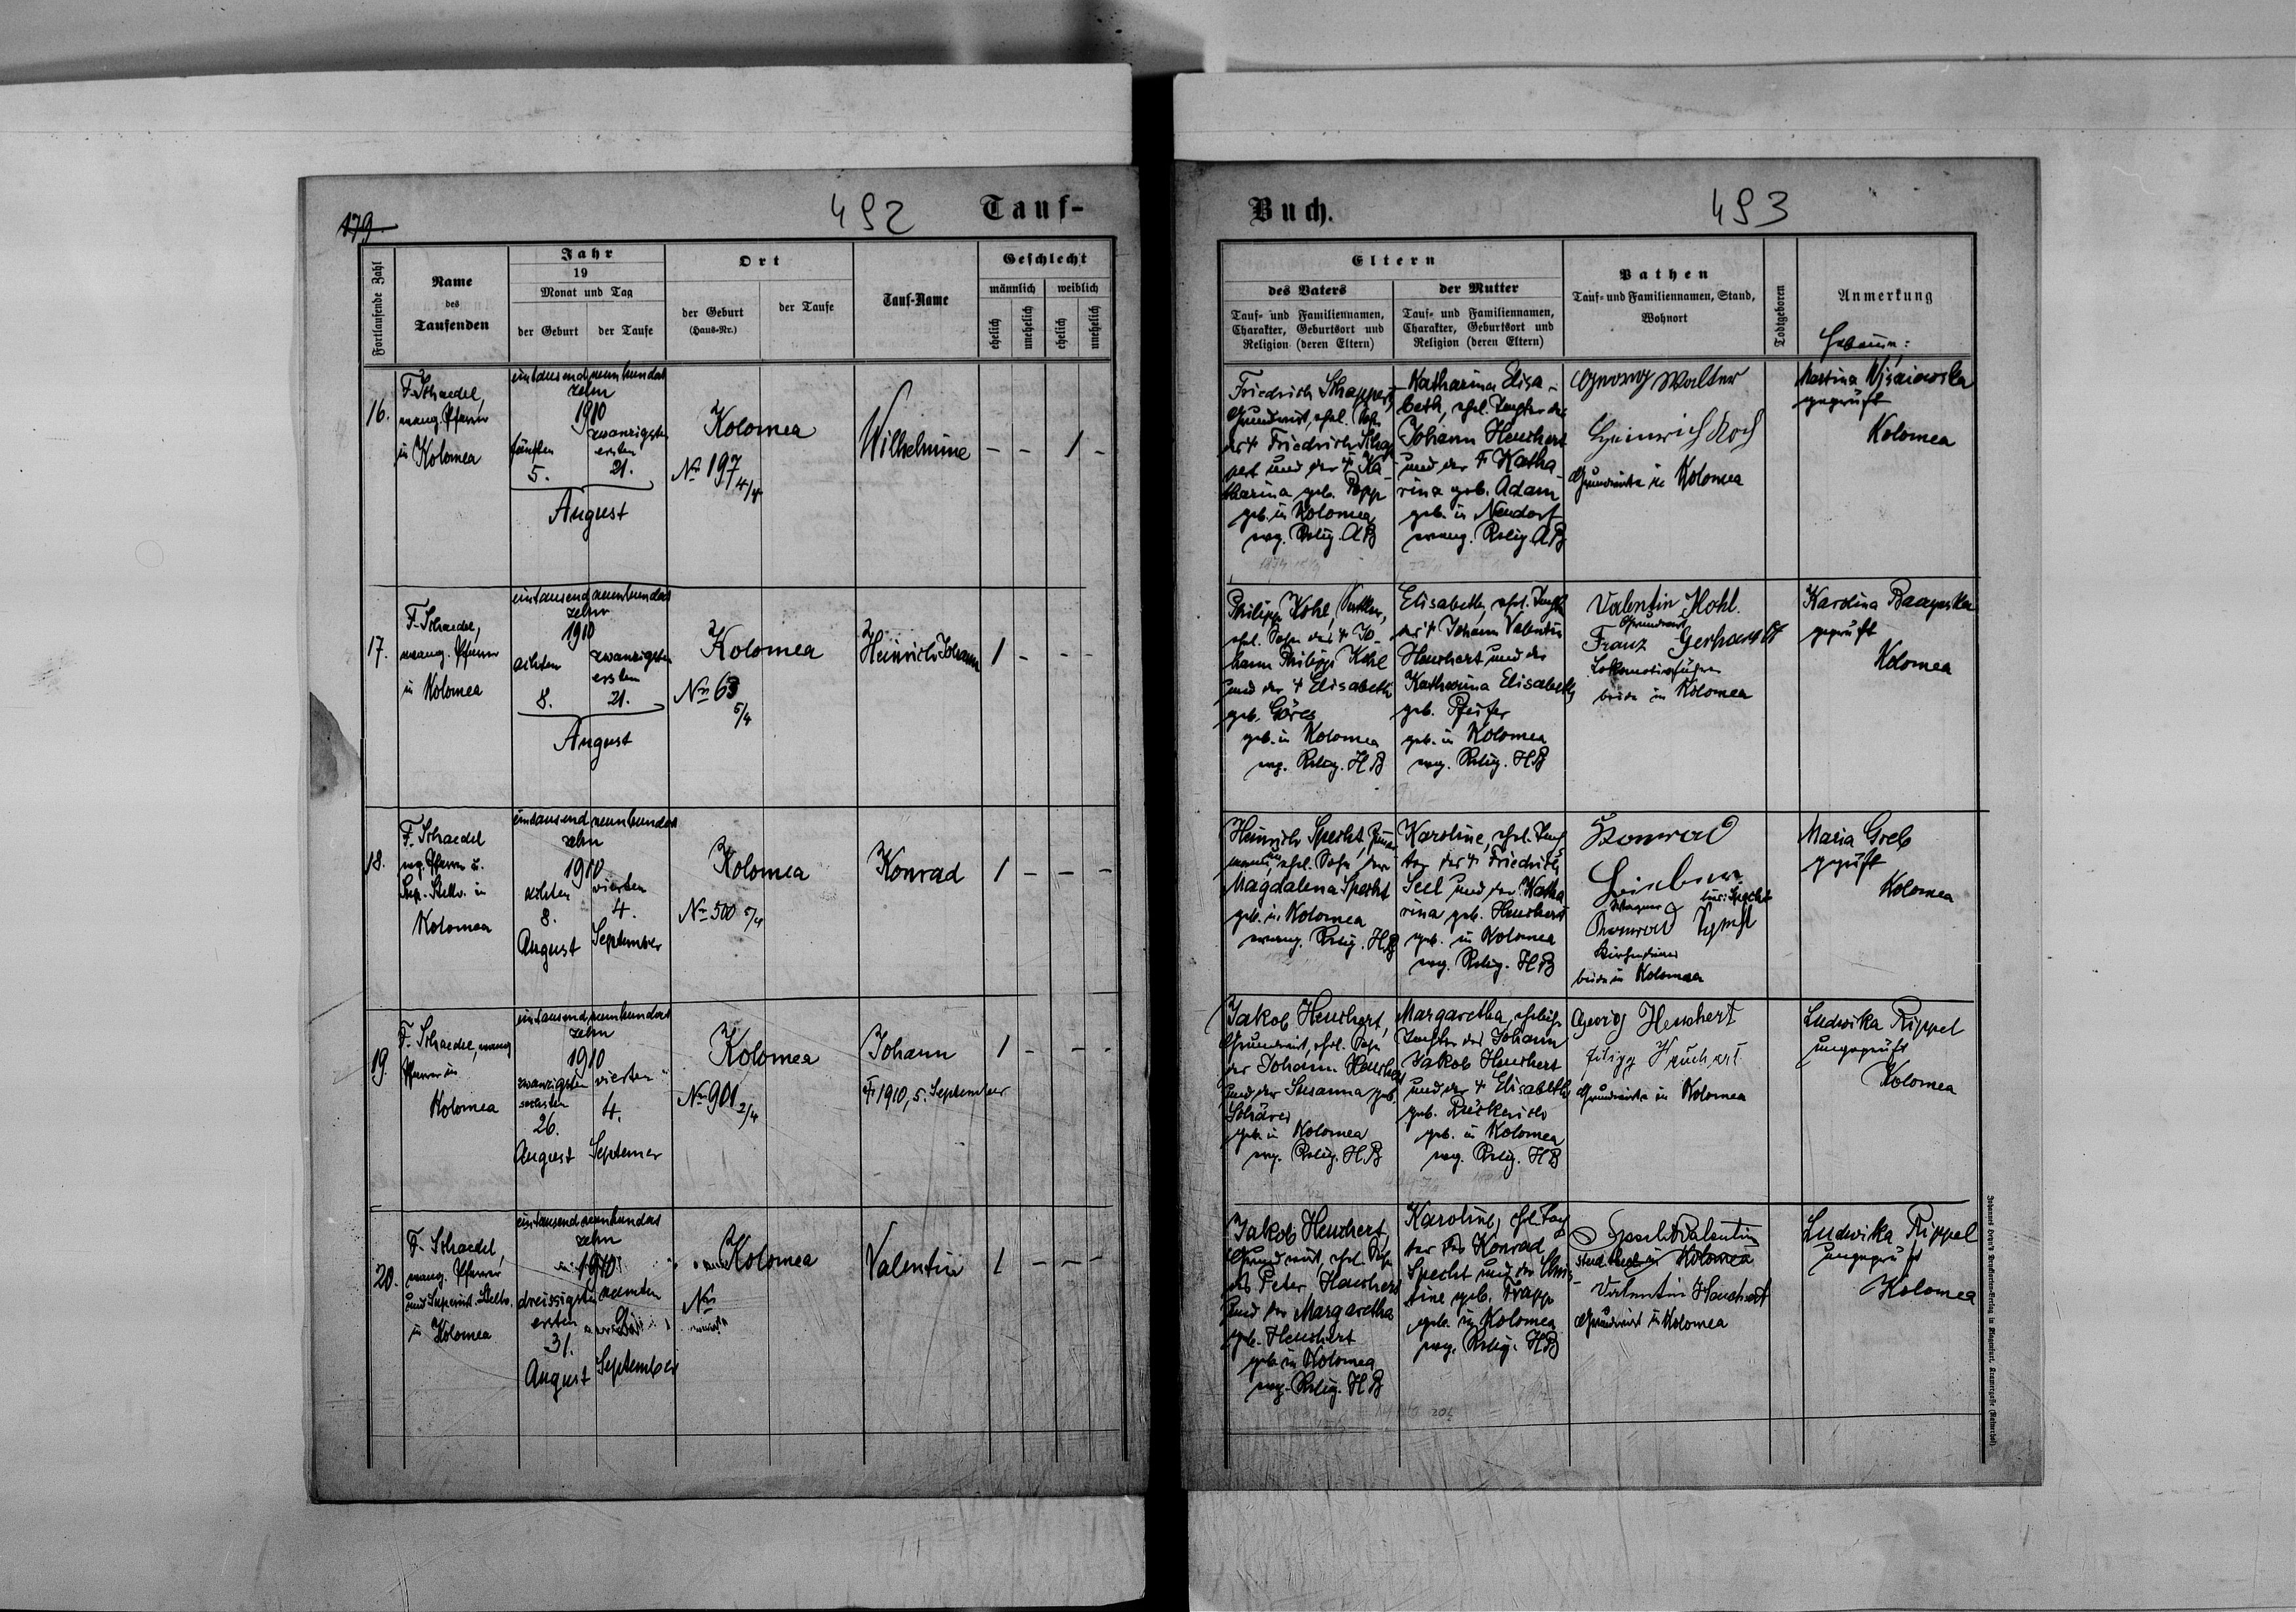 179.
492
Tauf-
Fortlaufende Zahl
Name
des
Taufenden
Jahr
19
Monat und Tag
der Geburt
der Taufe
Ort
der Geburt
(Haus-Nr.)
der Taufe
Tauf-Name
Geschlecht
männlich
weiblich
ehelich
unehelich
ehelich
unehelich
16.
F. Schaedel,
evang. Pfarrer
in Kolomea
eintausendneunhundert
zehn
1910
fünften
5.
zwanzigsten
ersten
21.
August
Kolomea
No 197
4/4
Wilhelmine
- - 1 -
17.
F. Schaedel,
evang. Pfarrer
in Kolomea
eintausendneunhundert
zehn
1910
achten
8.
zwanzigsten
ersten
21.
August
Kolomea
No 63
5/4
Heinrich Johann
1 - - -
18.
F. Schaedel
evg. Pfarrer u.
Sup. Stellv. in
Kolomea
eintausendneunhundert
zehn
1910
achten
8.
August
vierten
4.
September
Kolomea
No 500 5/4
Konrad
1 - - -
19.
F. Schaedel, evang
Pfarrer in
Kolomea
eintausendneunhundert
zehn
1910
zwanzigsten
sechsten
26.
August
vierten
4.
Septemer
Kolomea
No 901 2/4
Johann
† 1910, 5. September
1 - - -
20.
F. Schaedel,
evang. Pfarrer
und Superint. Stellv.
in Kolomea
eintausendneunhundert
zehn
1910
dreissigsten
ersten
31.
August
neunten
September
Kolomea
No
Valentin
1 - - -
Buch.
493
Eltern
des Vaters
Tauf- und Familiennamen,
Charakter, Geburtsort und
Religion (deren Eltern)
der Mutter
Tauf- und Familiennamen,
Charakter, Geburtsort und
Religion (deren Eltern)
Pathen
Tauf- und Familiennamen, Stand,
Wohnort
Todtgeboren
Anmerkung
Hebamme:
Friedrich Schappert,
Grundwirt, ehel. Sohn
des † Friedrich Schap
pert und der † Ka
tharina geb. Popp
geb. in Kolomea
evg. Relig. AB
Katharina Elisa-
beth, ehel. Tochter des
Johann Heuchert
und der † Katha
rina geb. Adam
geb. in Neudorf
evang. Relig. AB
Georg Walter
Heinrich Koch
Grundwirte in Kolomea
Martina
geprüft
Kolomea
Philipp Kohl,
ehel. Sohn des † Jo-
hann Philipp Kohl
und der † Elisabeth
geb. Göres
geb. in Kolomea
evg. Relig. HB
Elisabeth, ehel. Tochter
des † Johann Valentin
Heuchert und der
Katharina Elisabeth
geb. Pfeifer
geb. in Kolomea
evg. Relig. HB
Valentin Kohl.
Grundwirt
Franz Gerhardt
Lokomotivführer
beide in Kolomea
Karolina
geprüft
Kolomea
Heinrich Specht, Zimmer
mann, ehel. Sohn der
Magdalena Specht
geb. in Kolomea
evang. Relig. HB
Karoline, ehel. Toch
ter des † Friedrich
Seel und der Katha
rina geb. Heuchert
geb. in Kolomea
evg. Relig. HB
Konrad
Wagner
Konrad
Kirchendiener
beide in Kolomea
Maria Greb
geprüft
Kolomea
Jakob Heuchert,
Grundwirt, ehel. Sohn
des Johann Heuchert
und der Susanna geb.
Schärer
geb. in Kolomea
evg. Relig. HB
Margaretha, ehelige
Tochter des Johann
Jakob Heuchert
und der † Elisabeth
geb. Rückerich
geb. in Kolomea
evg. Relig. HB
Georg Heuchert
Filipp Heuchert
Grundwirte in Kolomea
Ludwika Rippel
ungeprüft
Kolomea
Jakob Heuchert,
Grundwirt, ehel. Sohn
des Peter Heuchert
und der Margaretha
geb. Heuchert
geb. in Kolomea
evg. Relig. HB
Karoline, ehel. Toch
ter des Konrad
Specht und der Chris-
tine geb. Trapp
geb. in Kolomea
evg. Relig. HB
Specht Valentin
in Kolomea
Valentin Heuchert
Grundwirt in Kolomea
Ludwika Rippel
ungeprüft
Kolomea